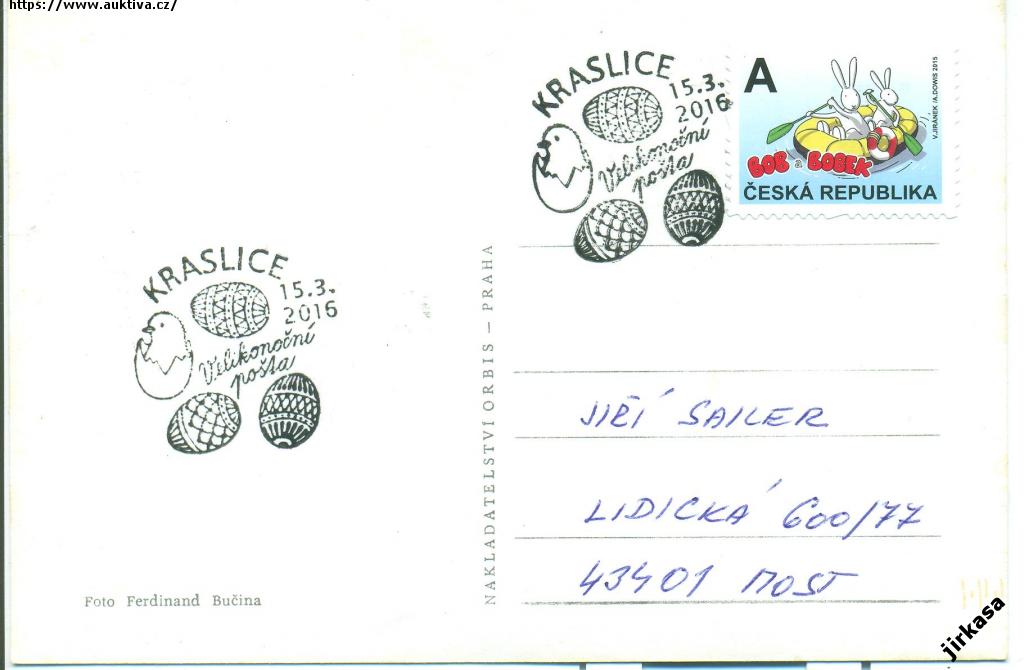 https://www.auktiva.cz/
KRASLICE
15.3.
2016
Velikonoční
pošta
A
V.JIRÁNEK /A.DOWIS 2015
BOB a BOBEK
ČESKÁ REPUBLIKA
KRASLICE
15.3.
2016
Velikonoční
pošta
NAKLADATELSTVÍ ORBIS – PRAHA
JIŘÍ SAILER
LIDICKÁ 600/77
43401 MOST
Foto Ferdinand Bučina
jirkasa